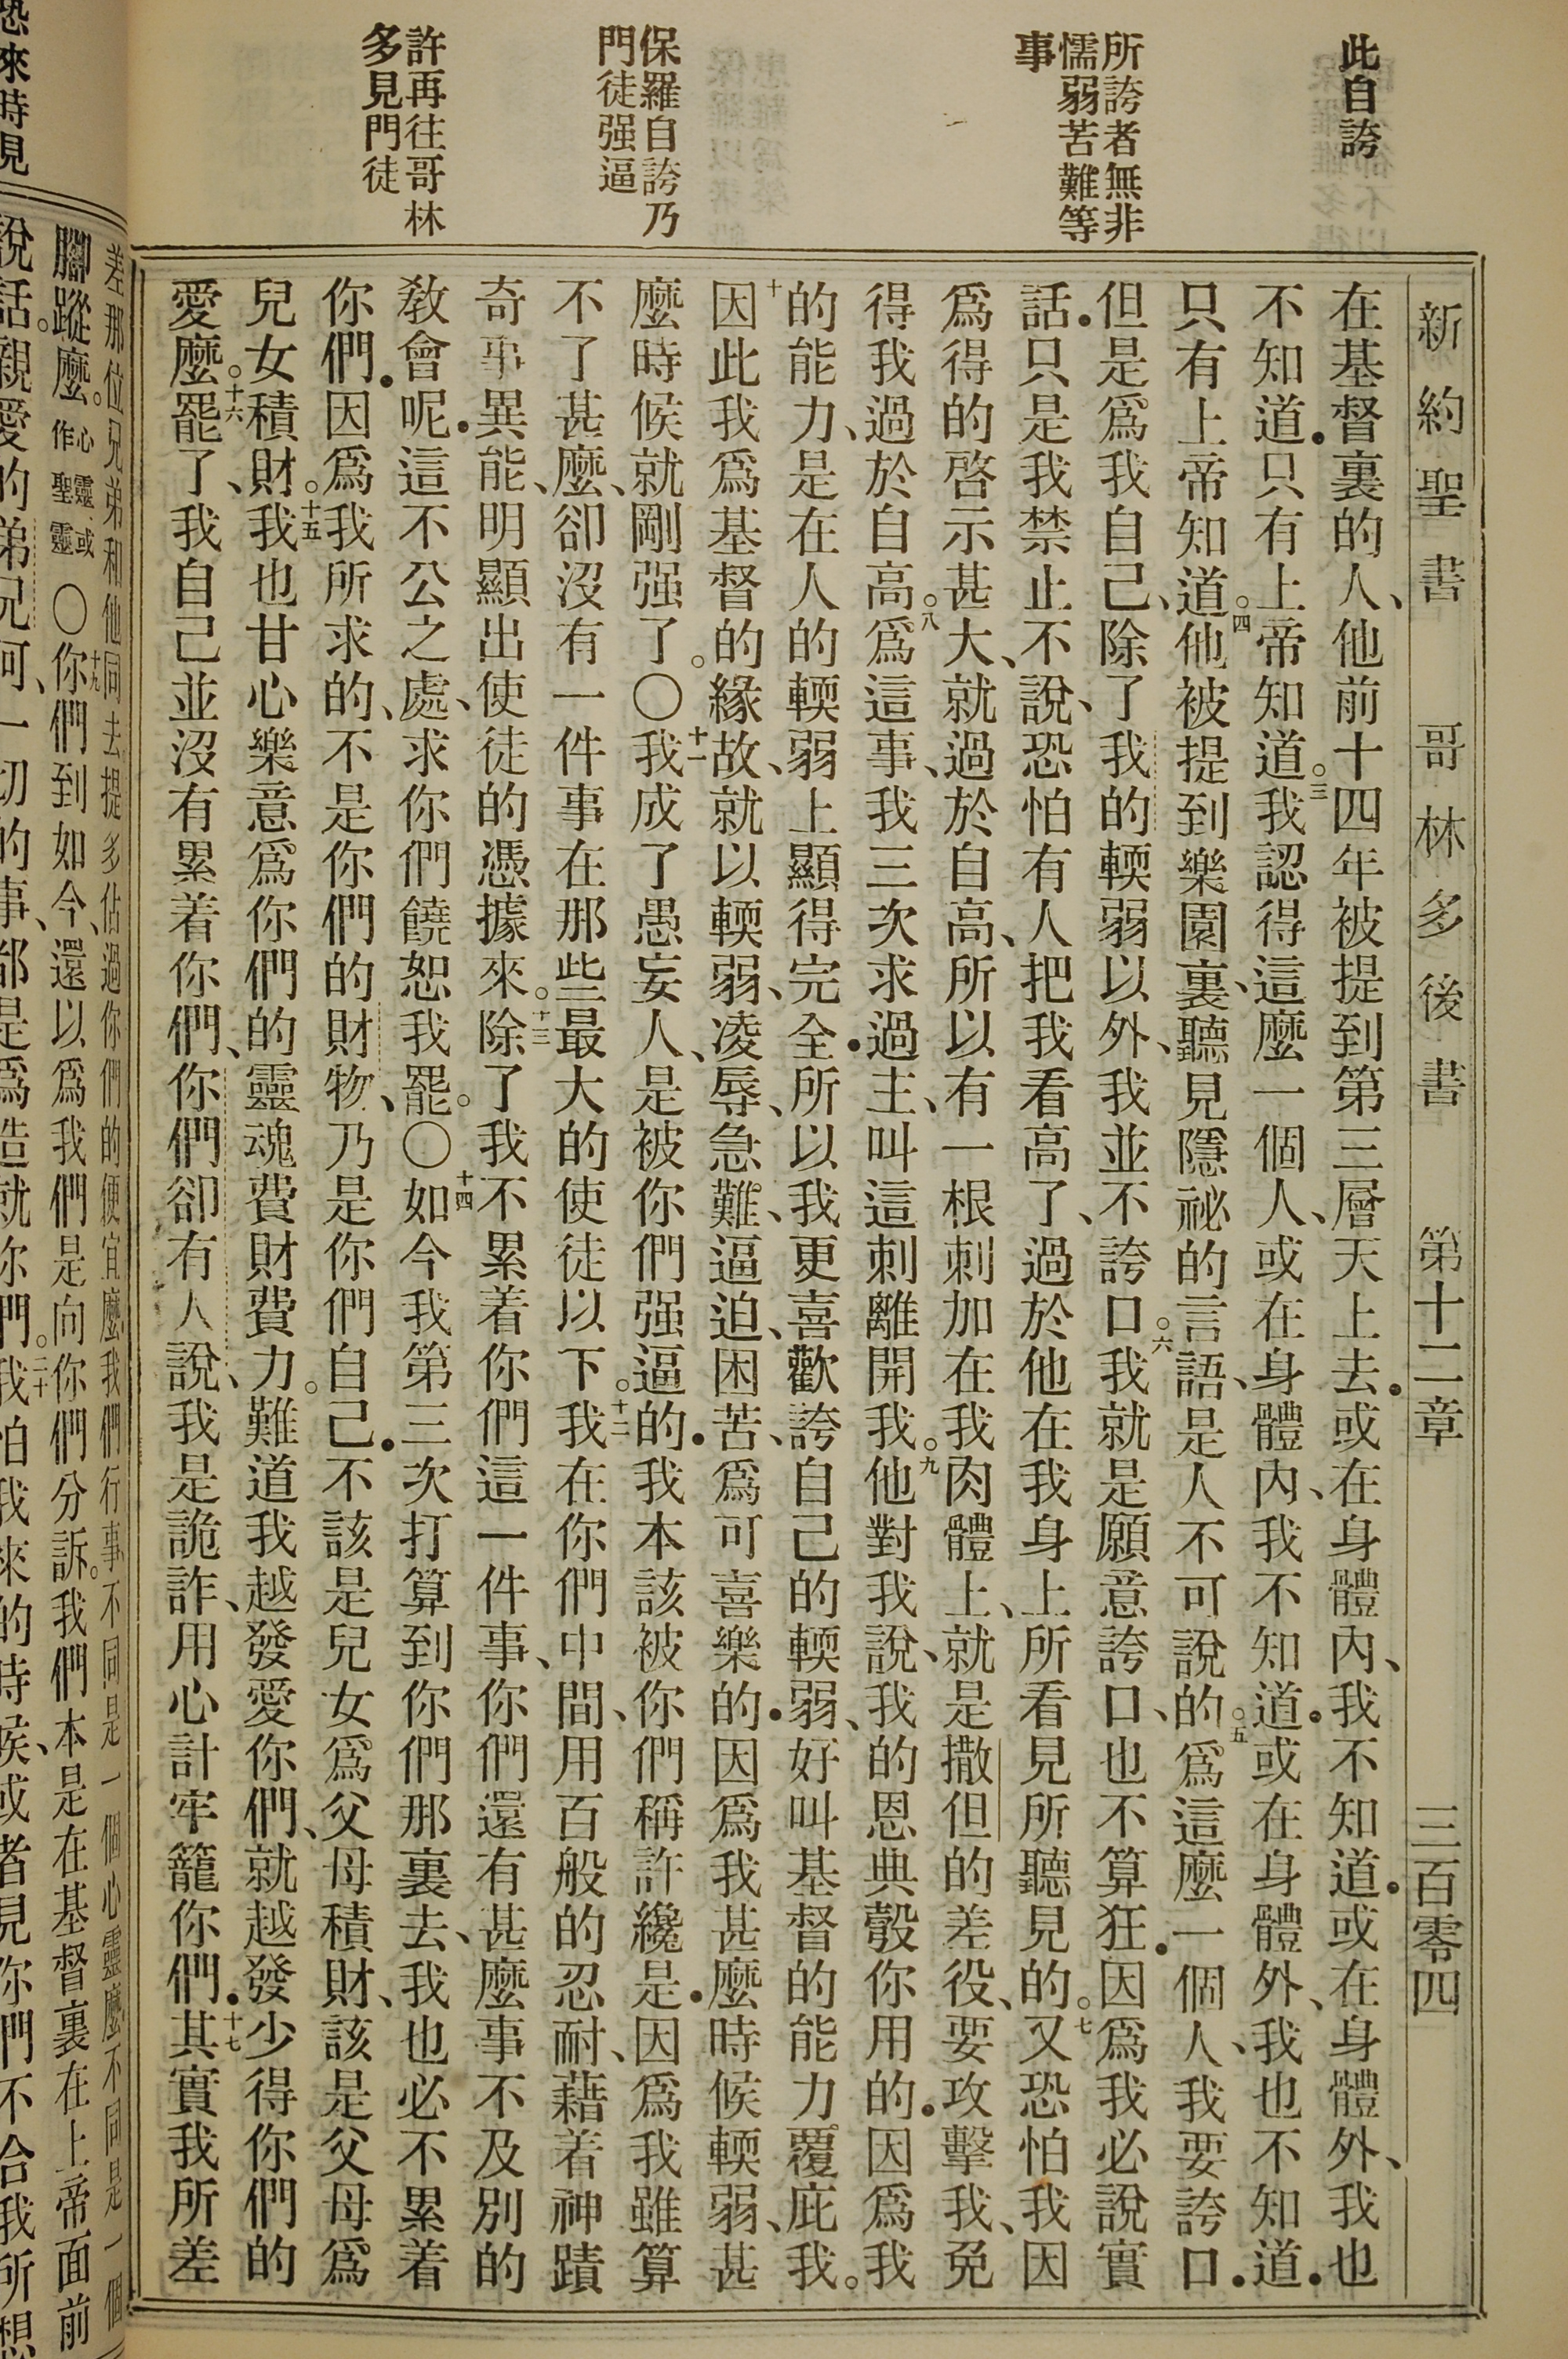 此自誇
所誇者無非
懦弱苦難等
事
保羅自誇乃
門徒强逼
許再往哥林
多見門徒
新約聖書 哥林多後書 第十二章 三百零四
在基督裏的人、他前十四年被提到第三層天上去●或在身體內、我不知道●或在身體外、我也
不知道●只有上帝知道。三我認得這麼一個人、或在身體內、我不知道●或在身體外、我也不知道●
只有上帝知道。四他被提到樂園裏、聽見隱祕的言語、是人不可說的。五爲這麼一個人、我要誇口●
但是爲我自己、除了我的輭弱以外、我並不誇口。六我就是願意誇口、也不算狂●因爲我必說實
話●只是我禁止不說、恐怕有人把我看高了、過於他在我身上所看見所聽見的。七又恐怕我因
爲得的啓示甚大、就過於自高、所以有一根刺加在我肉體上、就是撒但的差役、要攻擊我、免
得我過於自高。八爲這事、我三次求過主、叫這刺離開我。九他對我說、我的恩典彀你用的●因爲我
的能力、是在人的輭弱上顯得完全●所以我更喜歡誇自己的輭弱、好叫基督的能力覆庇我。
十因此我爲基督的緣故、就以輭弱、凌辱、急難、逼迫、困苦、爲可喜樂的●因爲我甚麼時候輭弱、甚
麼時候就剛强了。〇十一我成了愚妄人、是被你們强逼的●我本該被你們稱許纔是●因爲我雖算
不了甚麼、卻沒有一件事在那些最大的使徒以下。十二我在你們中間、用百般的忍耐、藉着神蹟
奇事異能、明顯出使徒的憑據來。十三除了我不累着你們這一件事、你們還有甚麼事不及別的
教會呢●這不公之處、求你們饒恕我罷。〇十四如今我第三次打算到你們那裏去、我也必不累着
你們●因爲我所求的、不是你們的財物、乃是你們自己●不該是兒女爲父母積財、該是父母爲
兒女積財。十五我也甘心樂意爲你們的靈魂費財費力。難道我越發愛你們、就越發少得你們的
愛麼。十六罷了、我自己並沒有累着你們、你們卻有人說、我是詭詐、用心計牢籠你們●十七其實我所差
差那位兄弟和他同去提多佔過你們的便宜麼我們行事不同是一個心靈麼不同是一個
腳蹤麼。心靈或作聖靈〇十九你們到如今、還以爲我們是向你們分訴。我們本是在基督裏在上帝面前
說話。親愛的弟兄阿、一切的事、都是爲造就你們。二十我怕我來的時候、或者見你們不合我所想
恐來時見